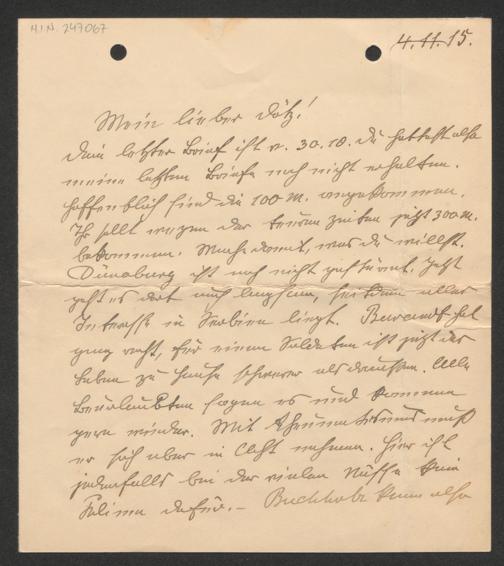 H.I.N. 247067
4.11.15.
Mein lieber Dötz!
Dein letzter Brief ist v. 30.10. du hattest also
meine letzten Briefe noch nicht erhalten.
Hoffentlich sind die 100 M. angekommen.
Ihr sollt wegen der teuren Zeiten jetzt 300 M.
bekommen. Mache damit, was du willst.
Dünaburg ist noch nicht gestürmt. Jetzt
geht es dort auch langsam, seitdem alles
Interesse in Serbien liegt. Burandt hat
ganz recht, für einen Soldaten ist jetzt das
Leben zu Hause schwerer als draußen. Alle
Beurlaubten sagen es und kommen
gern wieder. Mit Rheumatismus muß
er sich aber in Acht nehmen. Hier ist
jedenfalls bei der vielen Nässe kein
Klima dafür. – Buchholz kann also